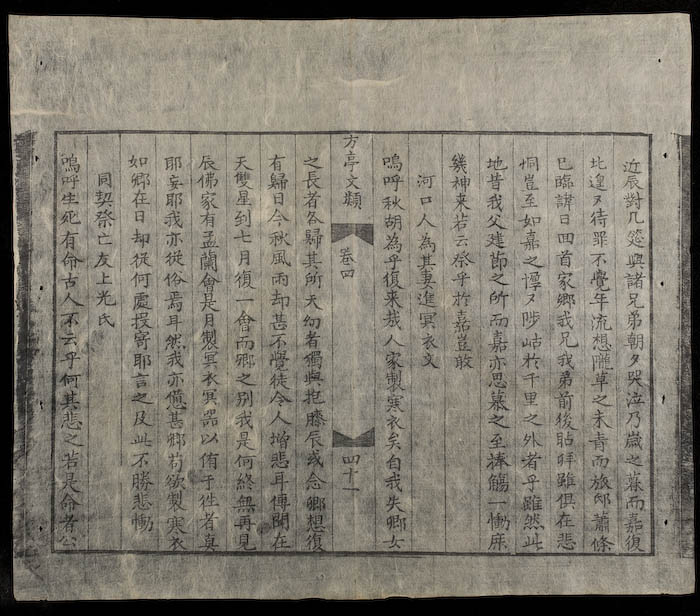 近辰對几筵與諸兄弟朝夕哭泣乃歲之暮而嘉復
北遑又待罪不覺年流想隴草之未青而旅邸蕭條
已臨諱日回首家鄉我兄我弟前後貼拜雖俱在悲
恫豈至如嘉之惸又陟岵於千里之外者乎雖然此
地昔我父建節之所而嘉亦思慕之至捧觴一慟庶
幾神来若云祭乎於嘉豈敢
河口人為其妻進冥衣文
嗚呼秋胡為乎復来哉人家製寒衣矣自我失卿女
方亭文類 卷四 四十一
之長者各歸其所天幼者獨與抱膝辰或念卿想復
有歸日今秋風雨却甚不覺徒令人增悲耳傳聞在
天雙星到七月復一會而卿之别我是何終無再見
辰佛家有盂蘭會是月製冥衣冥器以侑于徃者真
耶妄耶我亦從俗焉耳然我亦憊甚卿苟欲製寒衣
如卿在日却從何處投寄耶言之及此不勝悲慟
同契祭亡友上光氏
嗚呼生死有命古人不云乎何其悲之若是命者公